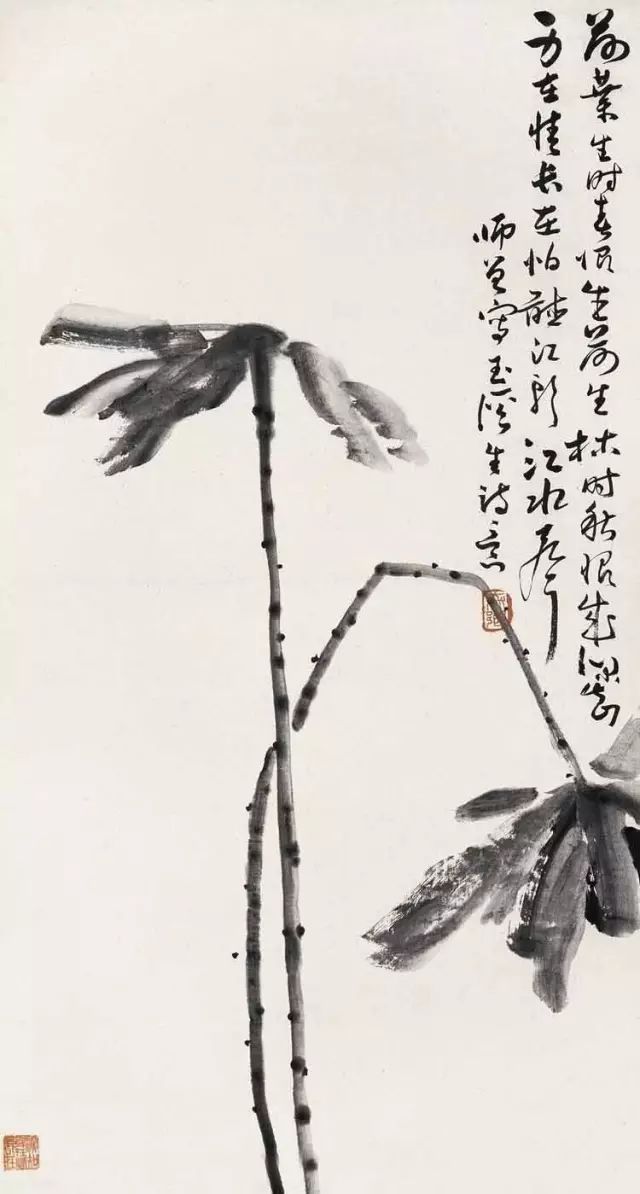 荷葉生时春恨生荷生枯时秋恨成深知
身在情长在怕聽江头江水声
师曾写玉溪生诗意